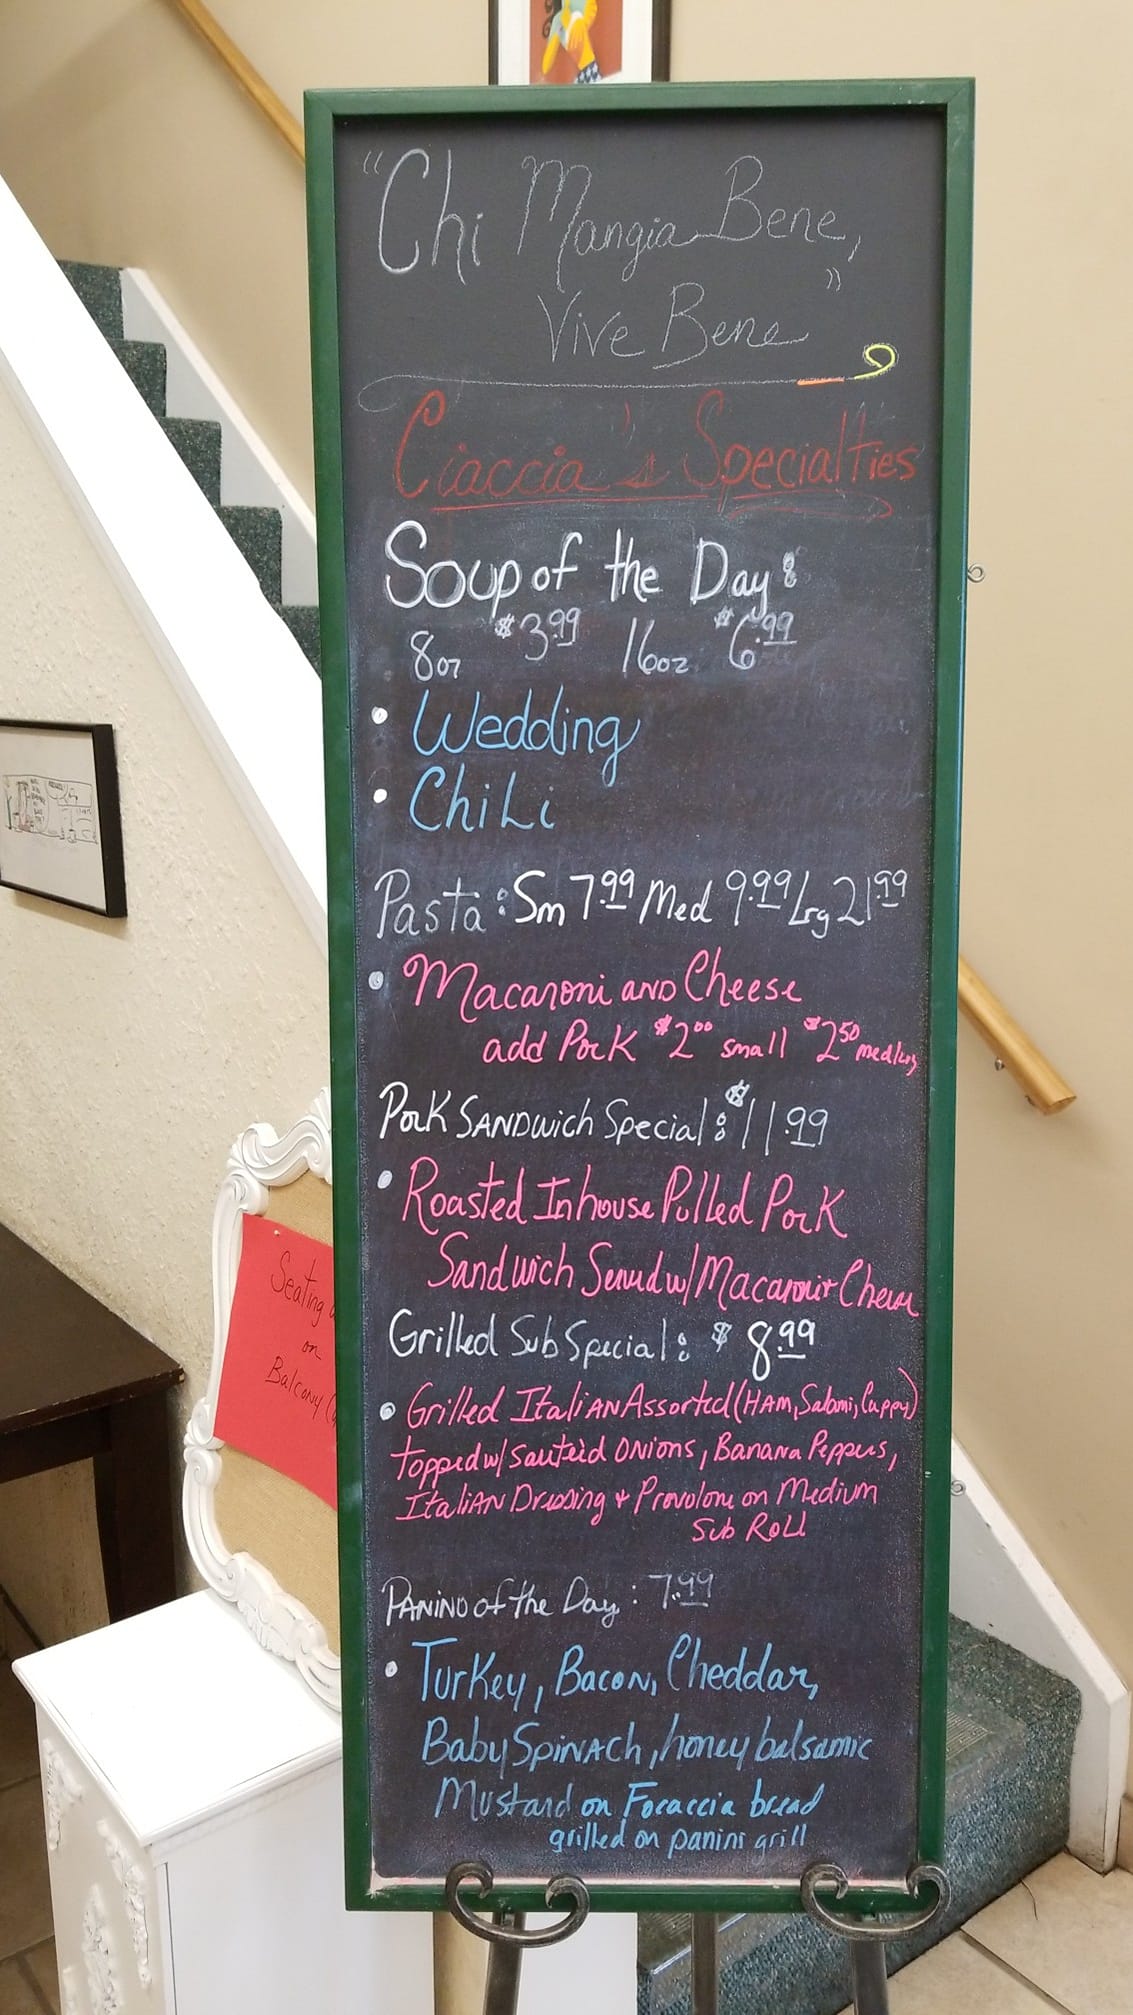 "Chi Mangia Bene,
Vive Bene"
Ciaccia's Specialties
Soup of the Day:
8oz $3.99 16oz $6.99
• Wedding
• ChiLi
Pasta: Sm 7.99 Med 9.99 Lrg 21.99
• Macaroni AND Cheese
add Pork $2.00 small $2.50 med/Lrg
Pork SANDwich Special: $11.99
• Roasted Inhouse Pulled Pork
Sandwich Served w/ Macaroni + Cheese
Grilled Sub Special: $8.99
• Grilled ItaliAN Assorted (HAM, Salami, Cappy)
topped w/ sauteéd ONions, Banana Peppers,
ItaliAN Dressing + Provolone on Medium
Sub Roll
PANINO of the Day: 7.99
• Turkey, Bacon, Cheddar,
Baby SpiNAch, honey balsamic
Mustard on Focaccia bread
grilled on panini grill
Seating
on
Balcony